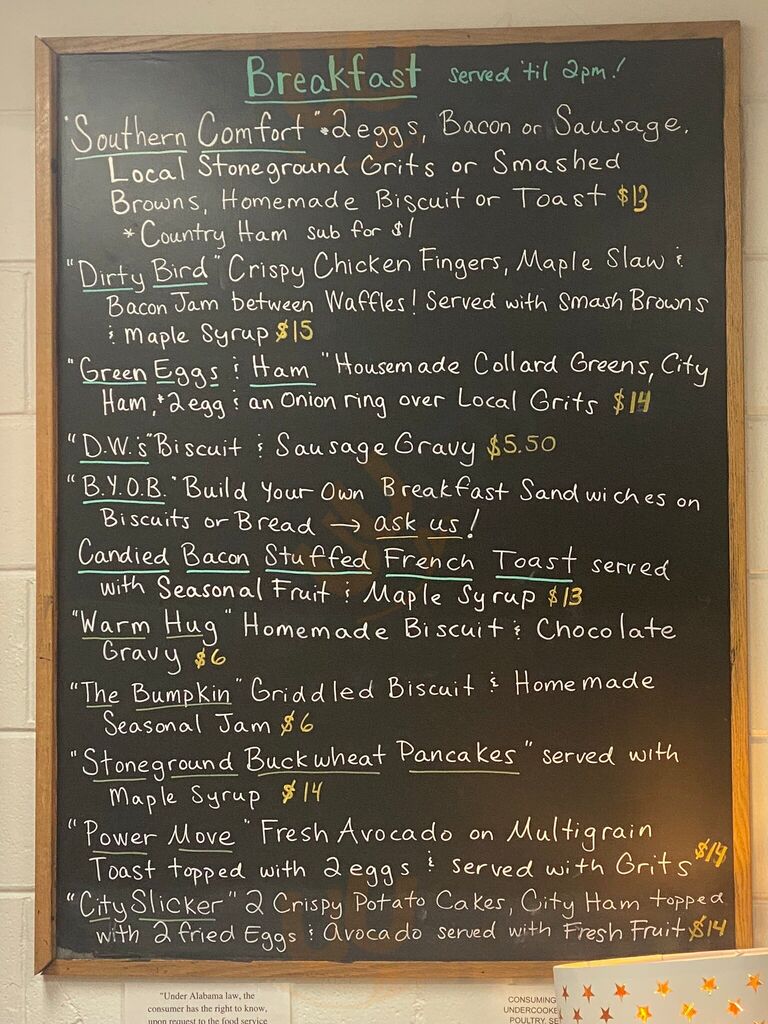 Breakfast served 'til 2pm!
"Southern Comfort" *2 eggs, Bacon or Sausage,
Local Stoneground Grits or Smashed
Browns, Homemade Biscuit or Toast $13
* Country Ham sub for $1
"Dirty Bird" Crispy Chicken Fingers, Maple Slaw &
Bacon Jam between Waffles! Served with Smash Browns
& Maple Syrup $15
"Green Eggs & Ham" Housemade Collard Greens, City
Ham, *2 egg & an Onion ring over Local Grits $14
"D.W.'s" Biscuit & Sausage Gravy $5.50
"B.Y.O.B." Build Your Own Breakfast Sandwiches on
Biscuits or Bread → ask us!
Candied Bacon Stuffed French Toast served
with Seasonal Fruit & Maple Syrup $13
"Warm Hug" Homemade Biscuit & Chocolate
Gravy $6
"The Bumpkin" Griddled Biscuit & Homemade
Seasonal Jam $6
"Stoneground Buckwheat Pancakes" served with
Maple Syrup $14
"Power Move" Fresh Avocado on Multigrain
Toast topped with 2 eggs & served with Grits $14
"City Slicker" 2 Crispy Potato Cakes, City Ham topped
with 2 fried Eggs & Avocado served with Fresh Fruit $14
"Under Alabama law, the
consumer has the right to know,
upon request to the food service
CONSUMING
UNDERCOOKE
POULTRY, SE